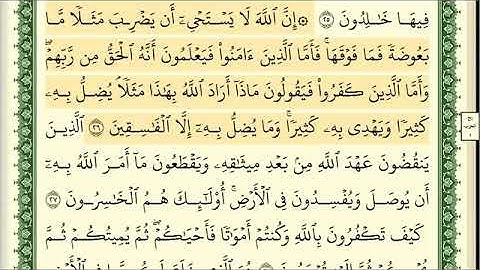 فِيهَا خَٰلِدُونَ ۝٢٥ ۞ إِنَّ ٱللَّهَ لَا يَسْتَحْىِۦٓ أَن يَضْرِبَ مَثَلًا مَّا
بَعُوضَةً فَمَا فَوْقَهَا ۚ فَأَمَّا ٱلَّذِينَ ءَامَنُوا۟ فَيَعْلَمُونَ أَنَّهُ ٱلْحَقُّ مِن رَّبِّهِمْ ۖ
وَأَمَّا ٱلَّذِينَ كَفَرُوا۟ فَيَقُولُونَ مَاذَآ أَرَادَ ٱللَّهُ بِهَٰذَا مَثَلًا ۘ يُضِلُّ بِهِۦ
كَثِيرًا وَيَهْدِى بِهِۦ كَثِيرًا ۚ وَمَا يُضِلُّ بِهِۦٓ إِلَّا ٱلْفَٰسِقِينَ ۝٢٦ ٱلَّذِينَ
يَنقُضُونَ عَهْدَ ٱللَّهِ مِنۢ بَعْدِ مِيثَٰقِهِۦ وَيَقْطَعُونَ مَآ أَمَرَ ٱللَّهُ بِهِۦٓ
أَن يُوصَلَ وَيُفْسِدُونَ فِى ٱلْأَرْضِ ۚ أُو۟لَٰٓئِكَ هُمُ ٱلْخَٰسِرُونَ ۝٢٧
كَيْفَ تَكْفُرُونَ بِٱللَّهِ وَكُنتُمْ أَمْوَٰتًا فَأَحْيَٰكُمْ ۖ ثُمَّ يُمِيتُكُمْ ثُمَّ